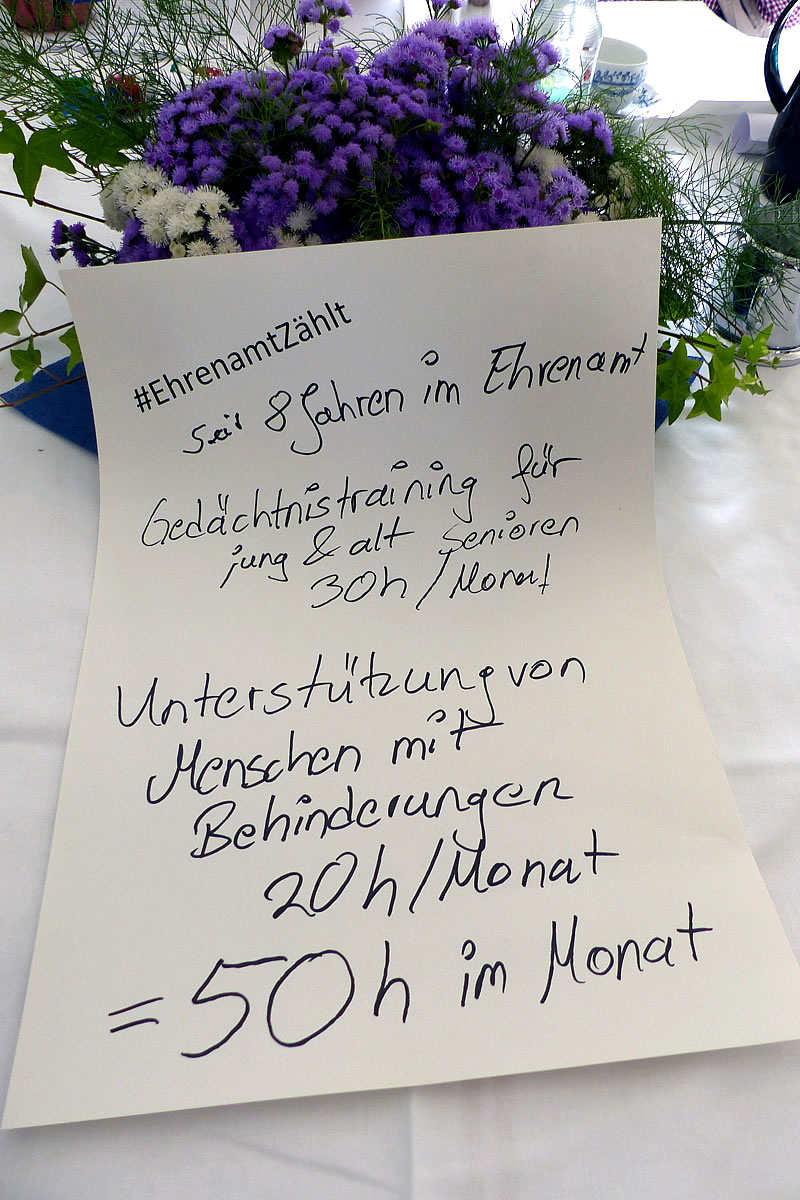 #EhrenamtZählt
seit 8 Jahren im Ehrenamt
Gedächtnistraining für
jung & alt Senioren
30h/Monat
Unterstützung von
Menschen mit
Behinderungen
20h/Monat
= 50h im Monat